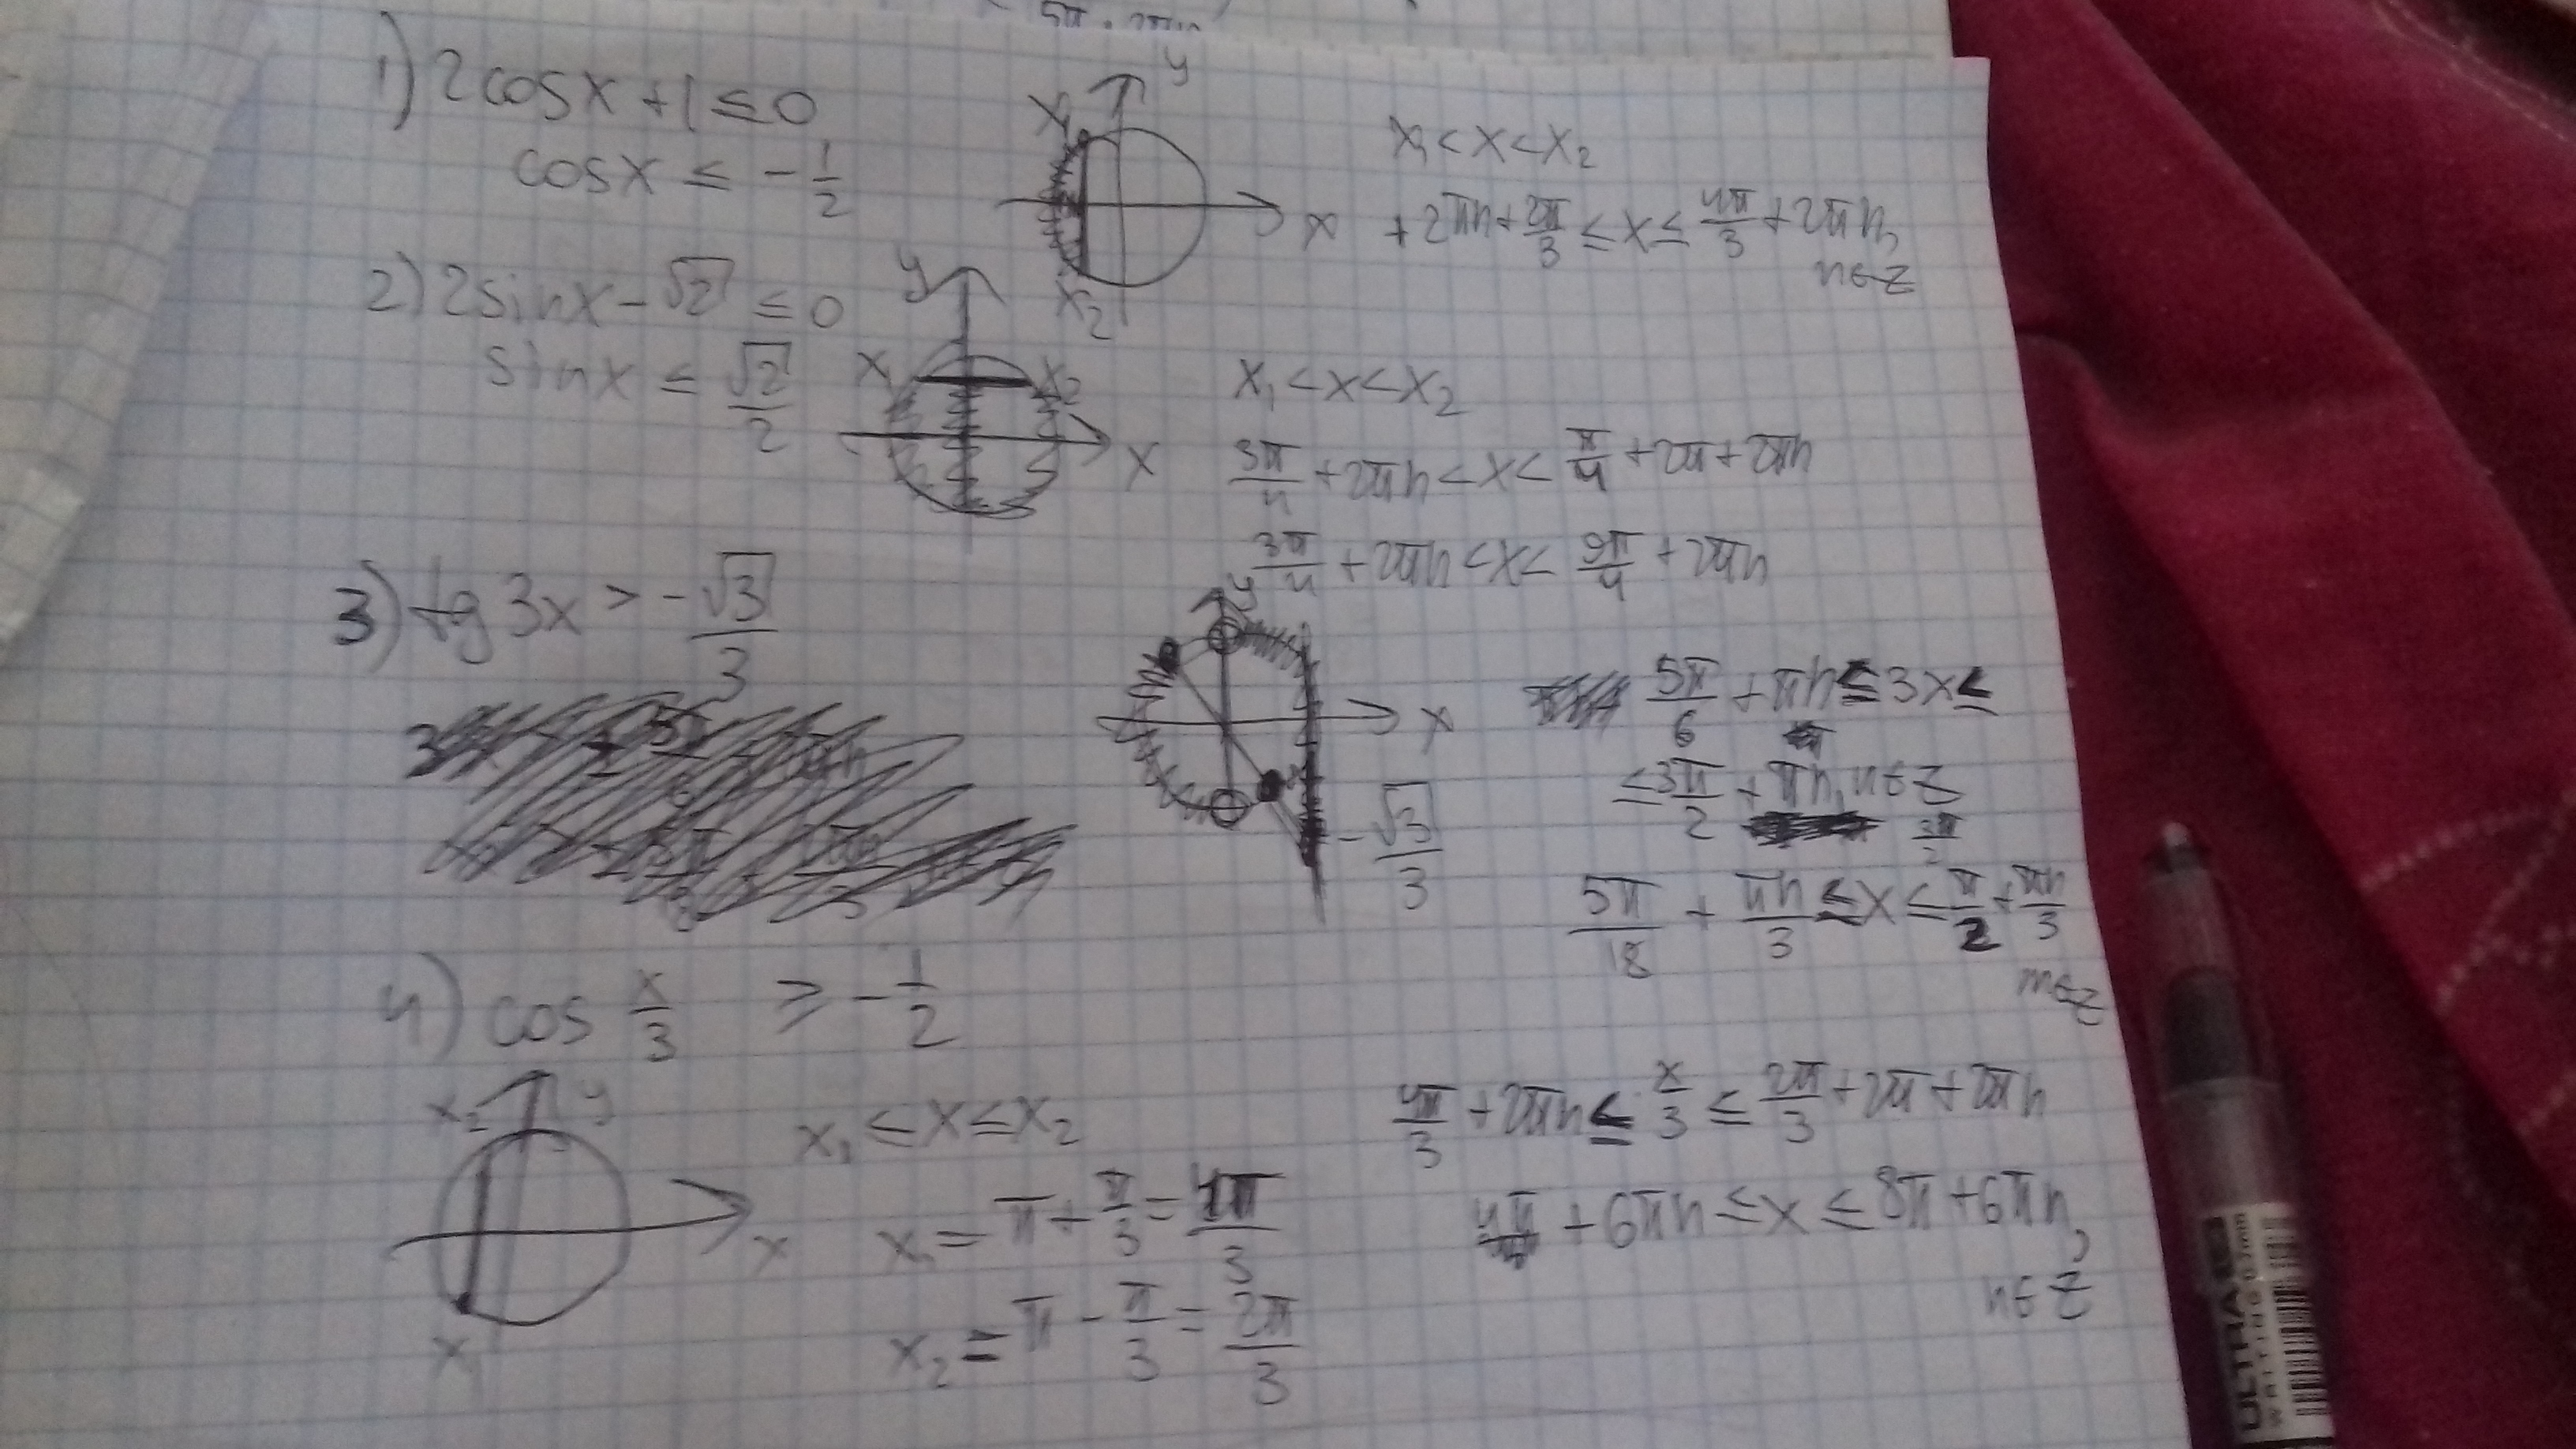 1) 2cosx + 1 ≤ 0
cosx ≤ -1/2
y
x₁
x₂
x
x₁ < x < x₂
+ 2πn + 2π/3 ≤ x ≤ 4π/3 + 2πn,
n∈Z
2) 2sinx - √2 ≤ 0
sinx ≤ √2/2
y
x₁
x₂
x
x₁ < x < x₂
3π/4 + 2πn < x < π/4 + 2π + 2πn
3π/4 + 2πn < x < 9π/4 + 2πn
3) tg 3x > -√3/3
y
x
-√3/3
5π/6 + πn ≤ 3x ≤
≤ 3π/2 + πn, n∈Z
3π/2
5π/18 + πn/3 ≤ x ≤ π/2 + πn/3
n∈Z
4) cos x/3 ≥ -1/2
x₂
y
x
x₁
x₁ ≤ x ≤ x₂
x₁ = π + π/3 = 4π/3
x₂ = π - π/3 = 2π/3
4π/3 + 2πn ≤ x/3 ≤ 2π/3 + 2π + 2πn
4π + 6πn ≤ x ≤ 8π + 6πn,
n∈Z
ULTRA
WRITING 0.7mm